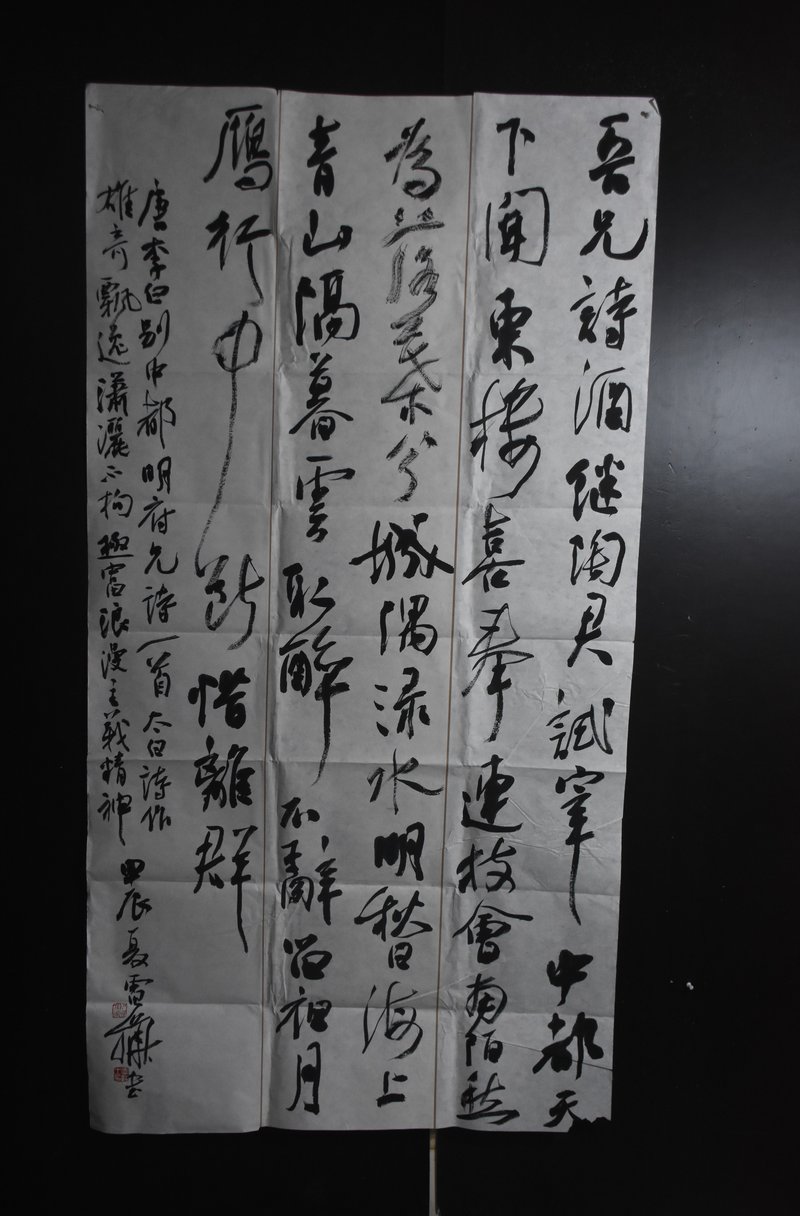 吾兄詩酒继陶君試宰中都天
下聞東楼喜奉連枝會南陌愁
為落葉分城隅渌水明秋日海上
青山隔暮雲取醉不辭留夜月
雁行中断惜離群
唐李白别中都明府兄詩一首太白詩作
雄奇飘逸瀟灑不拘極富浪漫主義精神 甲辰夏雷書